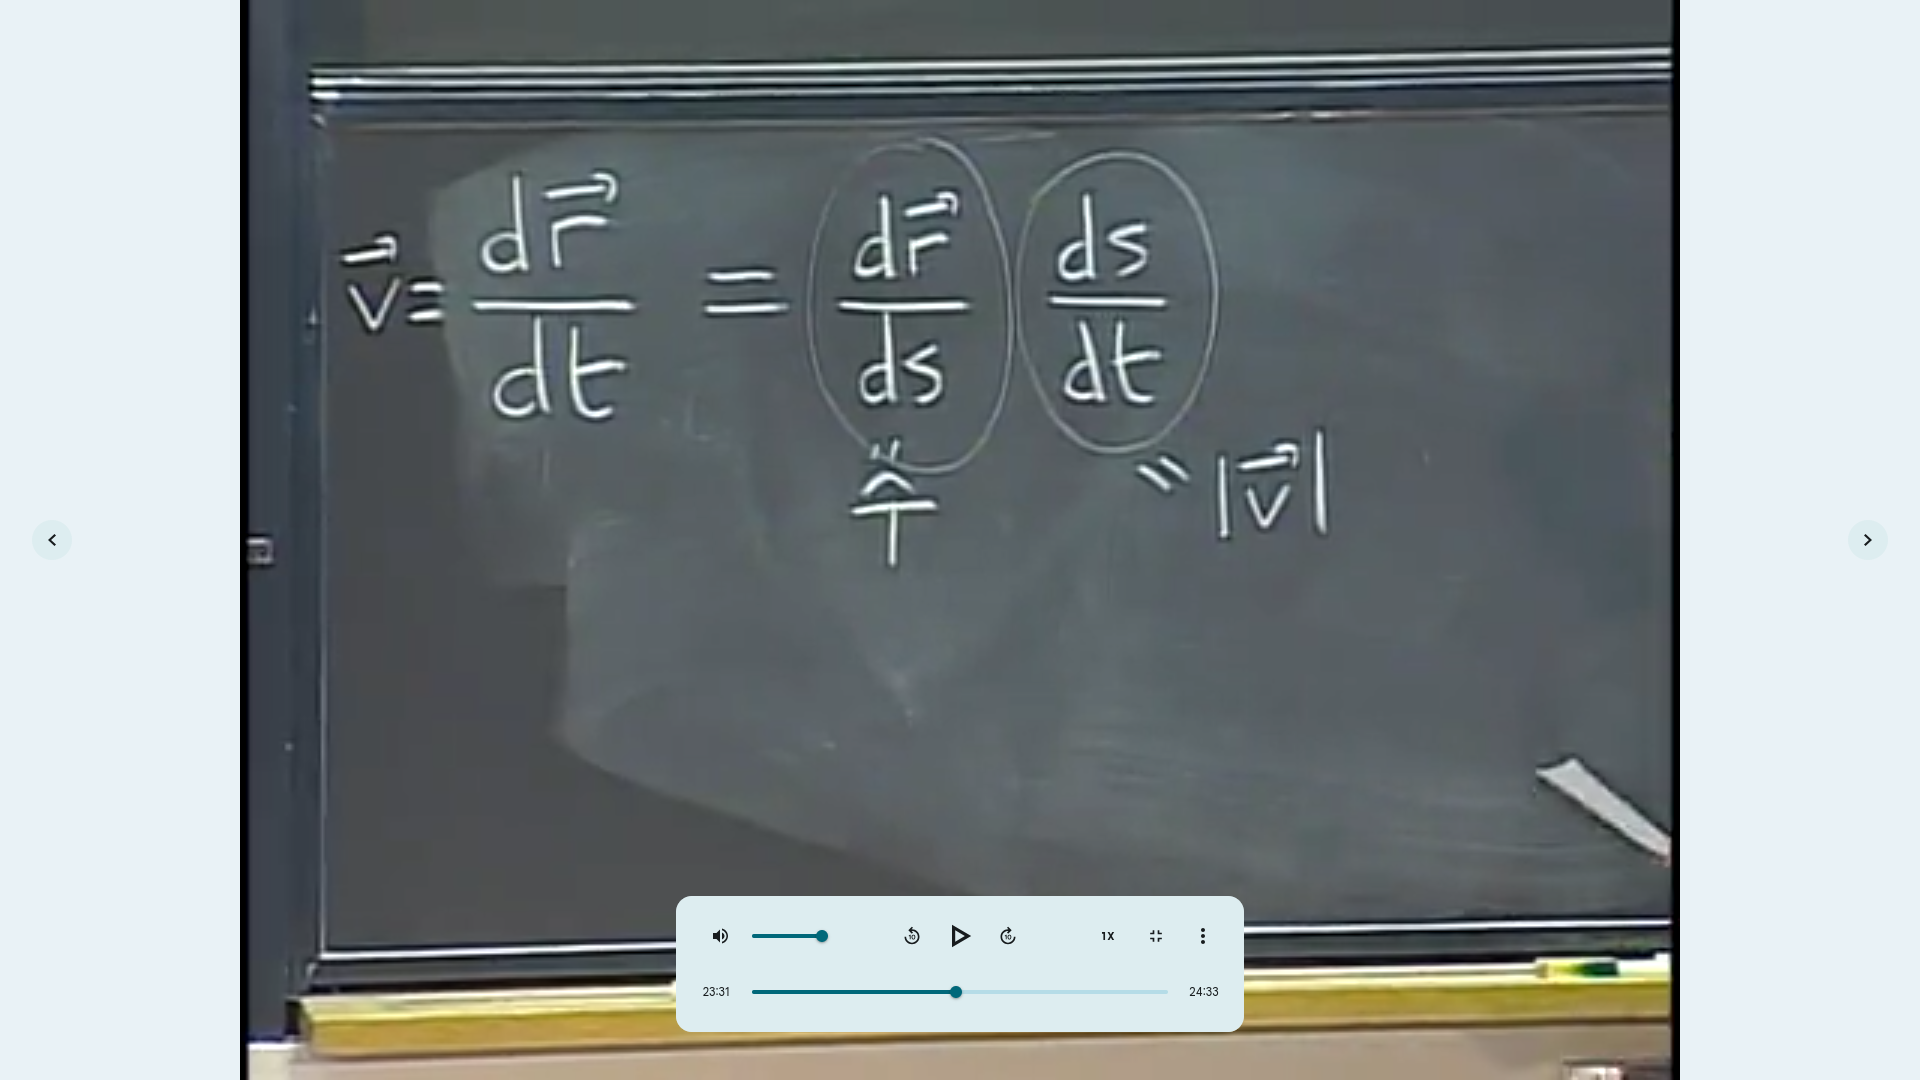 v⃗ = dr⃗/dt = dr⃗/ds ds/dt
= T̂ = |v⃗|
1X
23:31 24:33